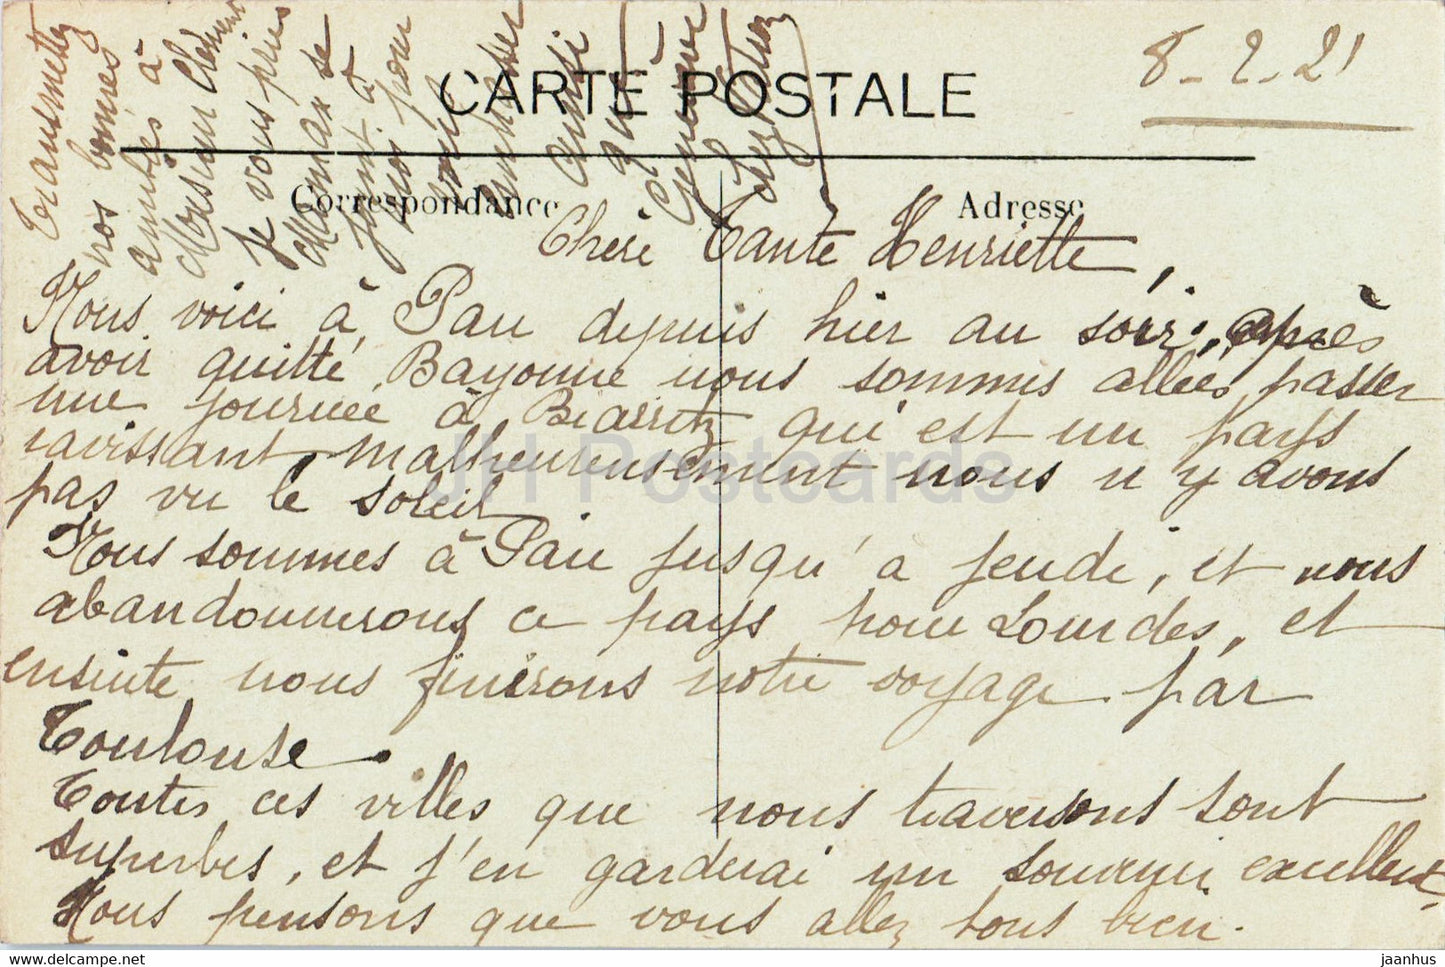 8-2-21
CARTE POSTALE
Correspondance
Adresse
Chère Tante Henriette,
Nous voici à Pau depuis hier au soir, après
avoir quitté Bayonne nous sommes allées passer
une journée à Biarritz qui est un pays
ravissant, malheureusement nous n'y avons
pas vu le soleil
Nous sommes à Pau jusqu'a jeudi, et nous
abandonnerons ce pays pour Lourdes, et
ensuite nous finirons notre voyage par
Toulouse.
Toutes ces villes que nous traversons sont
superbes, et j'en garderai un souvenir excellent.
Nous pensons que vous allez tous bien.
Transmettez
nos bonnes
amitiés à
Monsieur Clément
Je vous prie
Maman se
joint à
moi pour
vous
embrasser
ainsi
que
Geneviève
JH Postcards
hippostcard.com
jaanhus